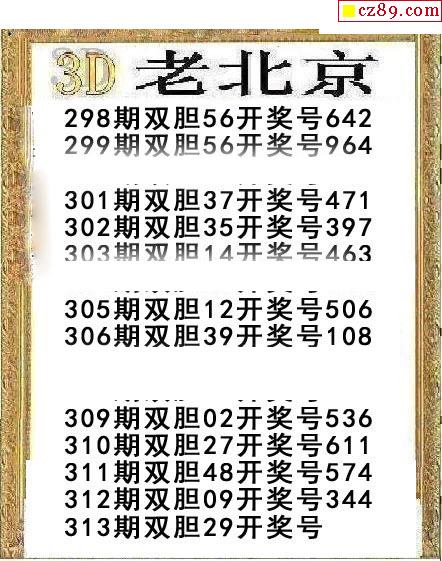 cz89.com
3D 老北京
298期双胆56开奖号642
299期双胆56开奖号964
301期双胆37开奖号471
302期双胆35开奖号397
303期双胆14开奖号463
305期双胆12开奖号506
306期双胆39开奖号108
309期双胆02开奖号536
310期双胆27开奖号611
311期双胆48开奖号574
312期双胆09开奖号344
313期双胆29开奖号